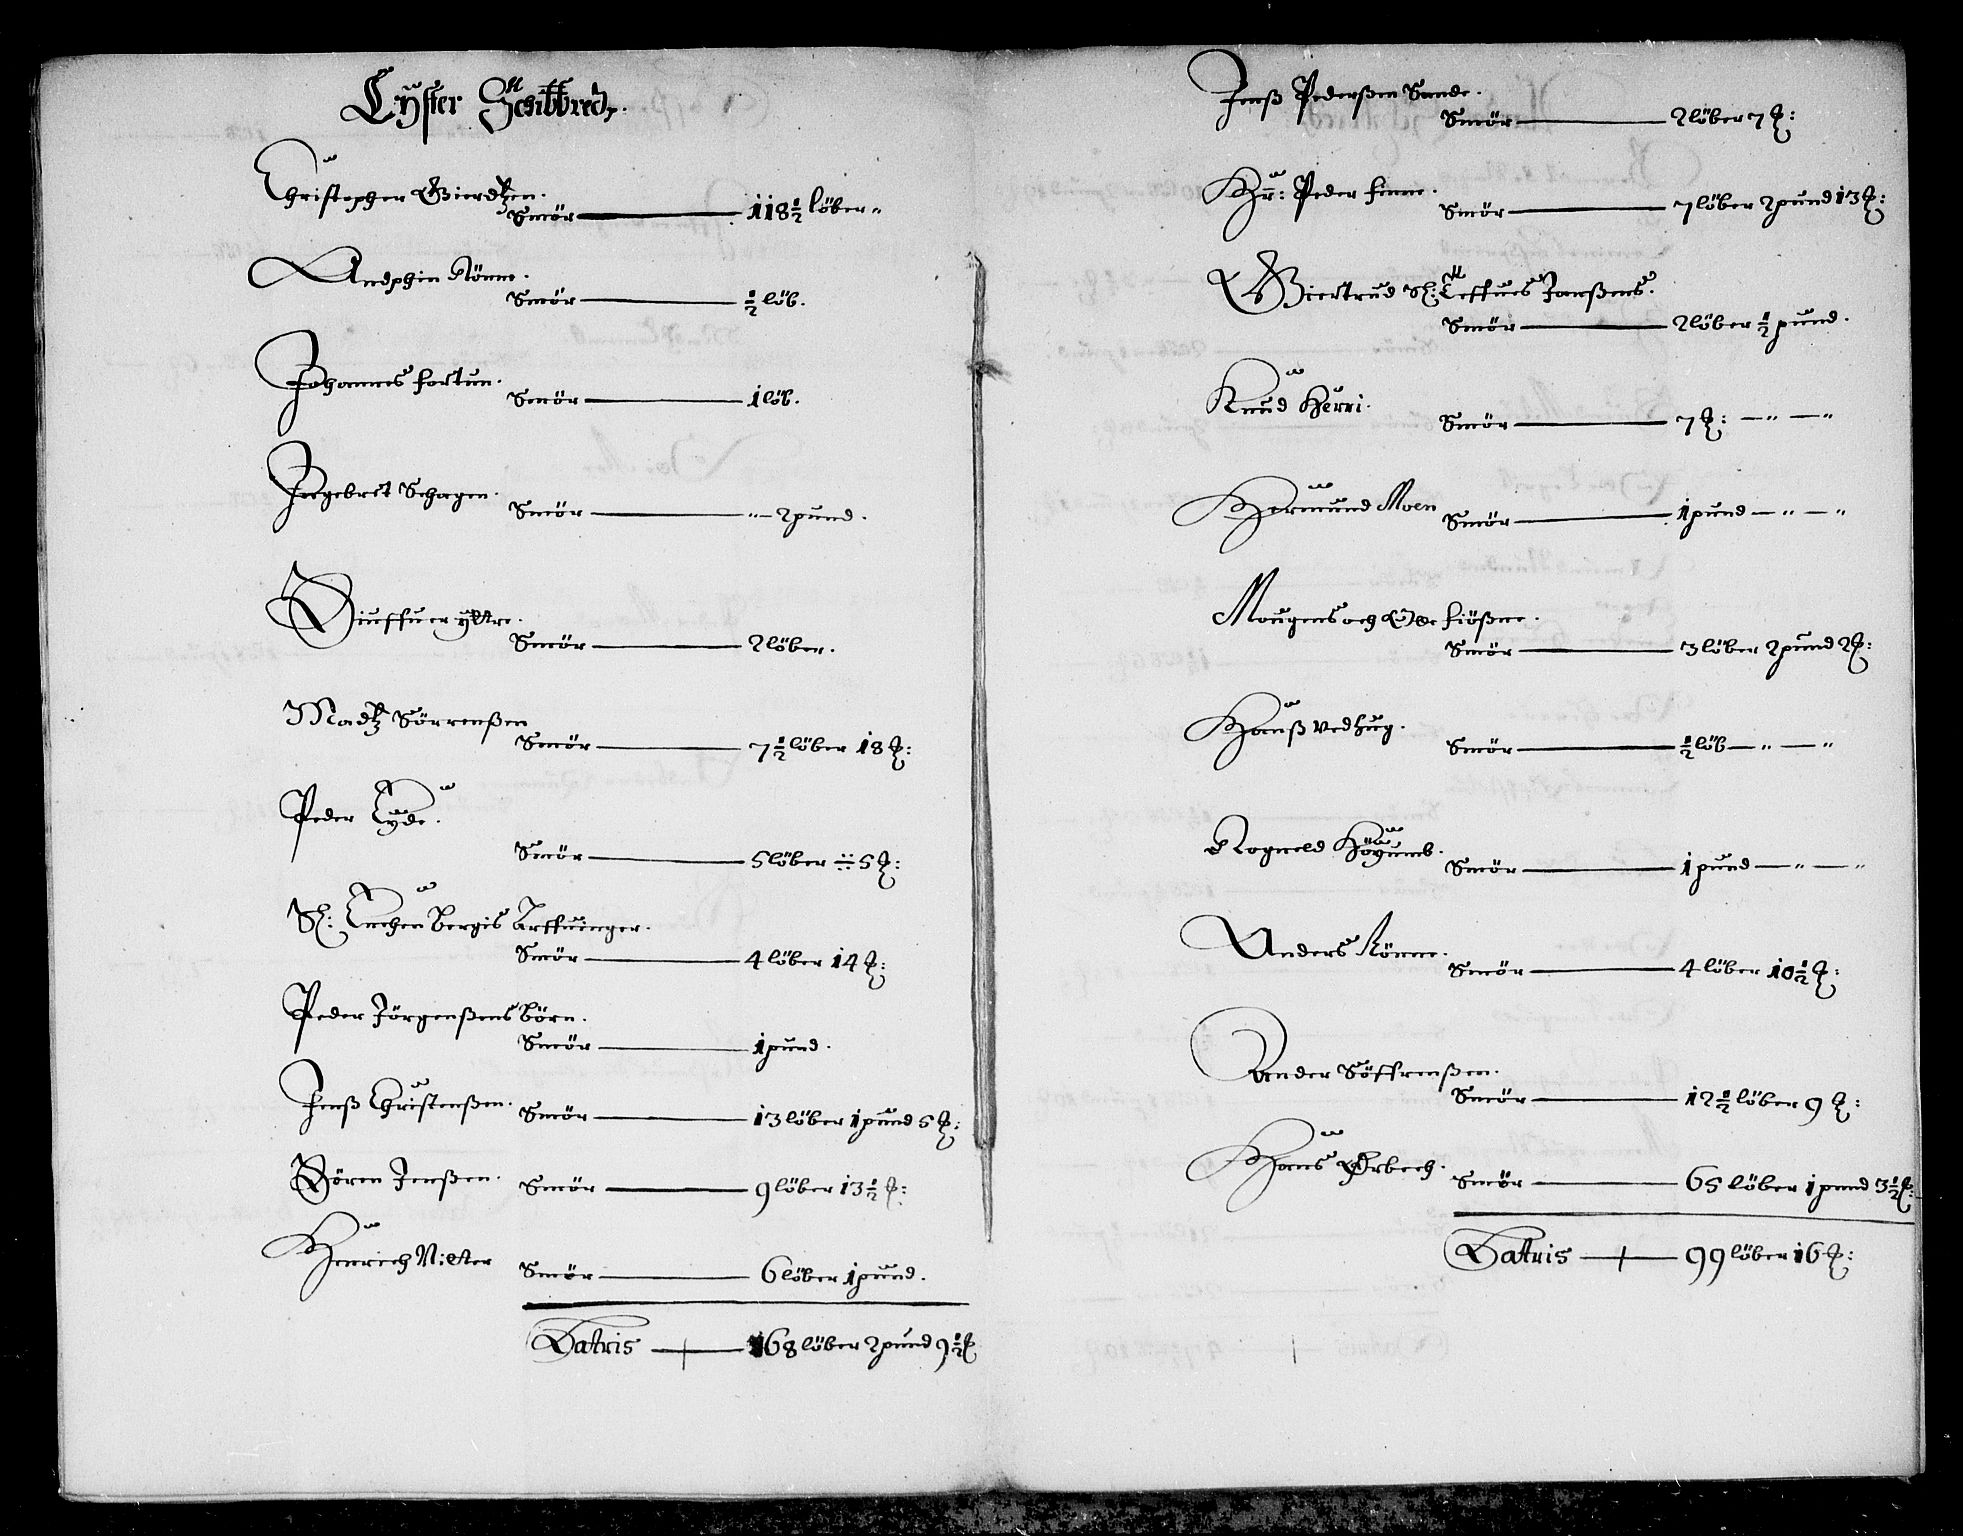 Lyster Schibbredt.
Christopher Gierdtzen.
Smör — 118½ löber "
Andphin Rönne.
Smör — ½ löb.
Johannes fortun.
Smör — 1 löb.
Ingebret Schagen.
Smör — " — 2 pund.
Siuffuer yttre.
Smör — 2 löber.
Madtz Sörrenßen
Smör — 7½ löber 18 ℔:
Peder Lyde.
Smör — 5 löber 5 ℔:
Sl: Anchen Bergis Arffuinger.
Smör — 4 löber 14 ℔:
Peder Jörgenßens Börn.
Smör — 1 pund.
Jenß Christenßen.
Smör — 13 löber 1 pund 5 ℔:
Sören Jenßen.
Smör — 9 löber 13½ ℔:
Hinrich Nitter
Smör — 6 löber 1 pund.
Latris — 168 löber 2 pund 9½ ℔
Jenß Pederßen Sunde.
Smör — 2 löber 7 ℔:
Hr: Peder finne.
Smör — 7 löber 2 pund 13 ℔:
Giertrud Sl: Leffues Janßens.
Smör — 2 löber ½ pund.
Knud Herri.
Smör — 7 ℔: — " — "
Hermund Moen
Smör — 1 pund — " — "
Mougens och Ole fiößne.
Smör — 3 löber 2 pund 2 ℔:
Hanß vedhug.
Smör — ½ löb — " — "
Rogneld Höyumb.
Smör — 1 pund — " — "
Anders Rönne.
Smör — 4 löber 10½ ℔:
Ander Söffrenßen.
Smör — 12½ löber 9 ℔:
Hans Orbech.
Smör — 65 löber 1 pund 3½ ℔:
Latris — 99 löber 16 ℔: